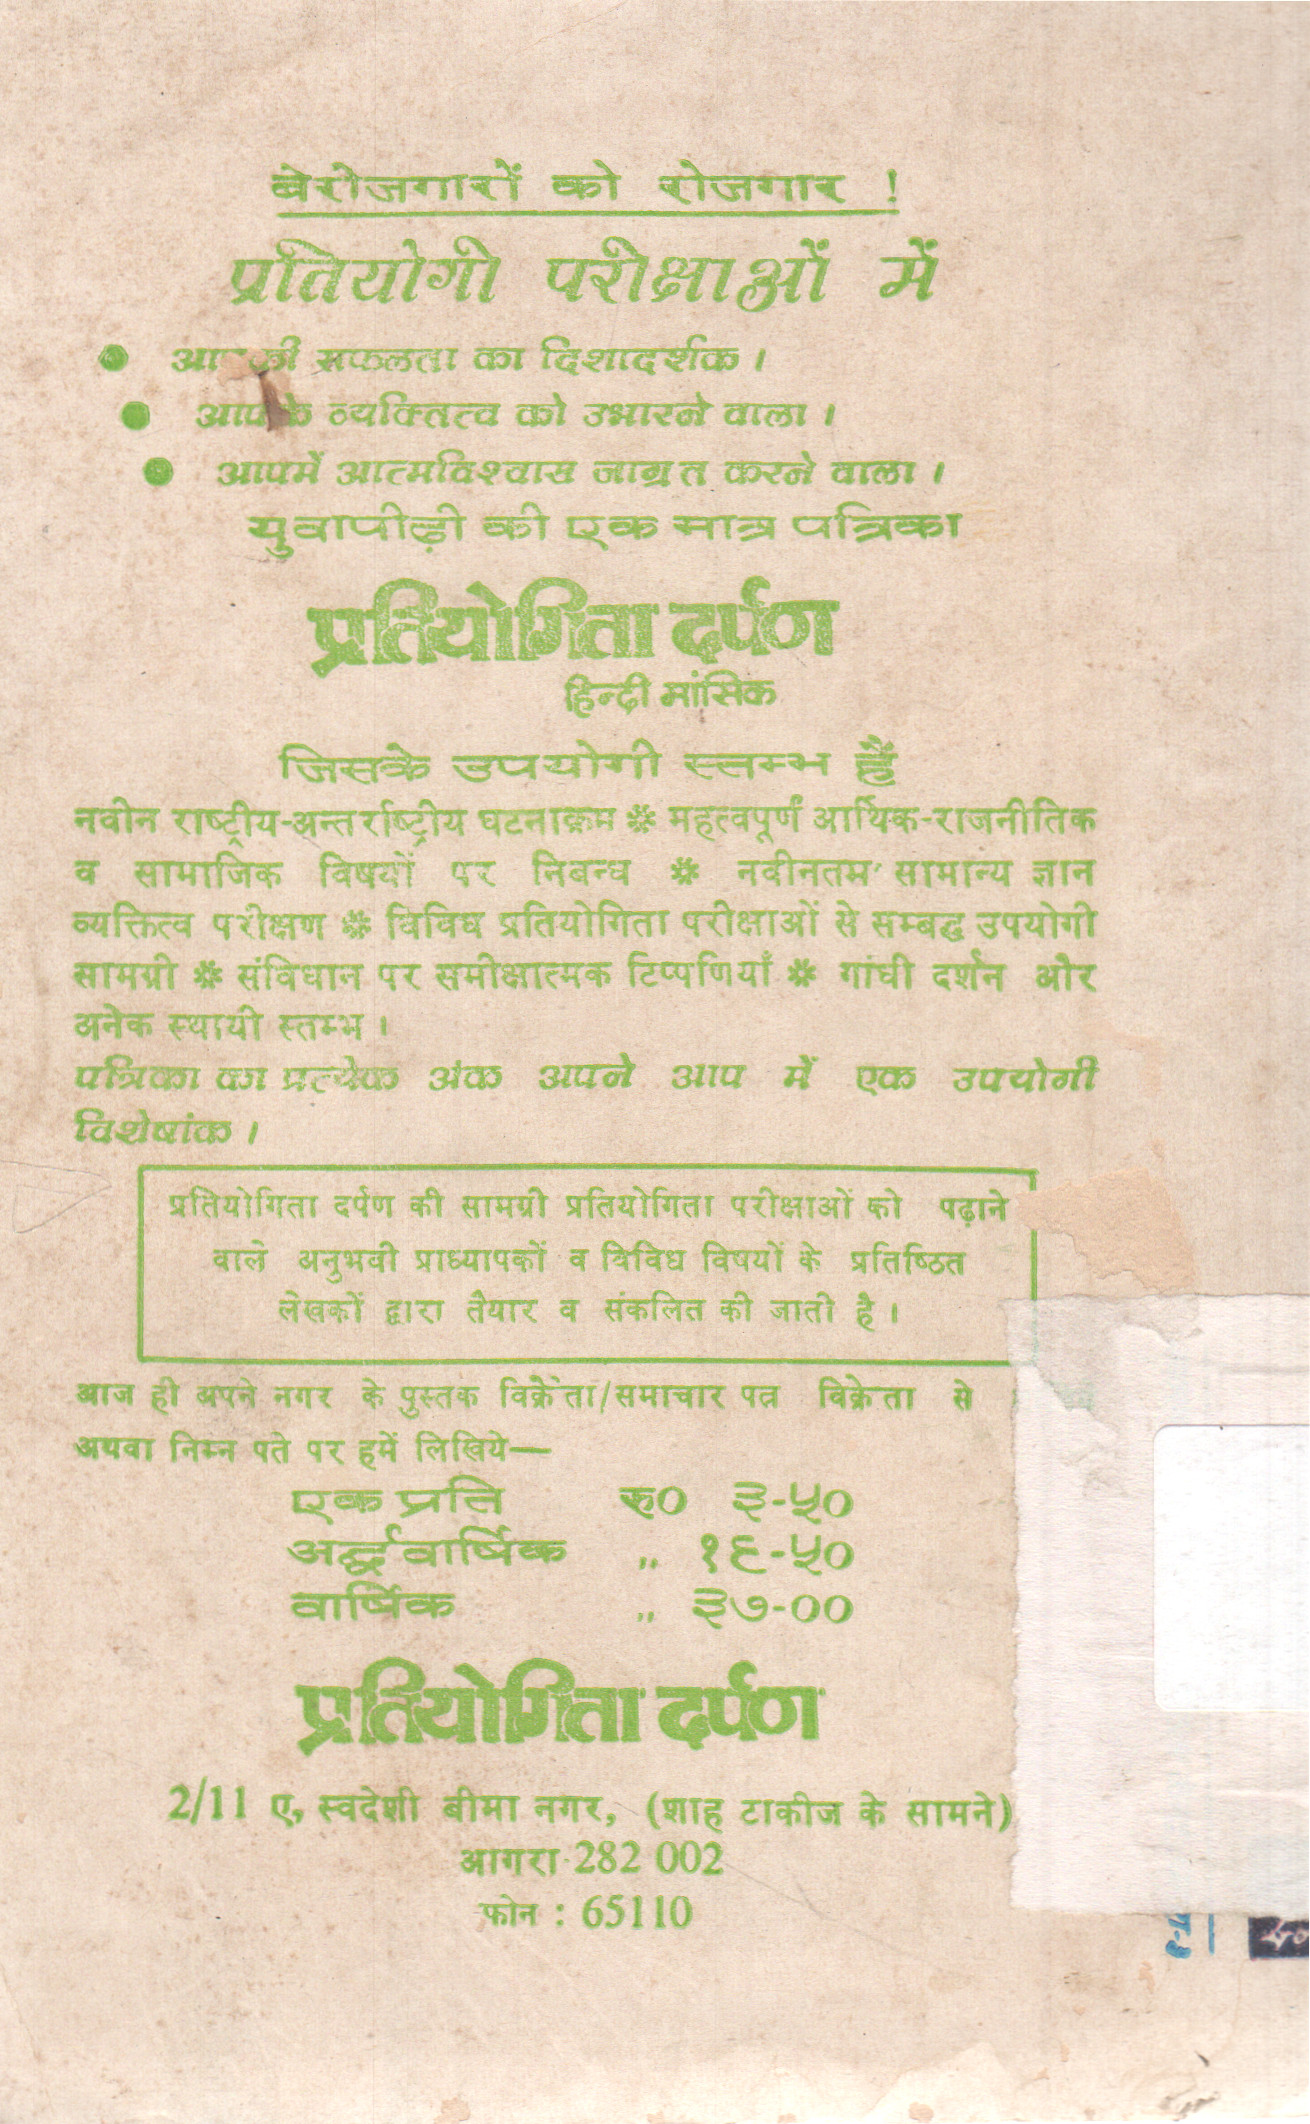 बेरोजगारों को रोजगार !
प्रतियोगी परीक्षाओं में
● आपकी सफलता का दिशादर्शक ।
● आपके व्यक्तित्व को उभारने वाला ।
● आपमें आत्मविश्वास जाग्रत करने वाला ।
युवापीढ़ी की एक मात्र पत्रिका
प्रतियोगिता दर्पण
हिन्दी मांसिक
जिसके उपयोगी स्तम्भ हैं
नवीन राष्ट्रीय-अन्तर्राष्ट्रीय घटनाक्रम ❋ महत्वपूर्ण आर्थिक-राजनीतिक
व सामाजिक विषयों पर निबन्ध ❋ नवीनतम सामान्य ज्ञान
व्यक्तित्व परीक्षण ❋ विविध प्रतियोगिता परीक्षाओं से सम्बद्ध उपयोगी
सामग्री ❋ संविधान पर समीक्षात्मक टिप्पणियाँ ❋ गांधी दर्शन और
अनेक स्थायी स्तम्भ ।
पत्रिका का प्रत्येक अंक अपने आप में एक उपयोगी
विशेषांक ।
प्रतियोगिता दर्पण की सामग्री प्रतियोगिता परीक्षाओं को पढ़ाने
वाले अनुभवी प्राध्यापकों व विविध विषयों के प्रतिष्ठित
लेखकों द्वारा तैयार व संकलित की जाती है ।
आज ही अपने नगर के पुस्तक विक्रेता/समाचार पत्र विक्रेता से
अथवा निम्न पते पर हमें लिखिये—
एक प्रति रु० ३-५०
अर्द्धवार्षिक ,, १९-५०
वार्षिक ,, ३७-००
प्रतियोगिता दर्पण
2/11 ए, स्वदेशी बीमा नगर, (शाह टाकीज के सामने)
आगरा-282 002
फोन : 65110